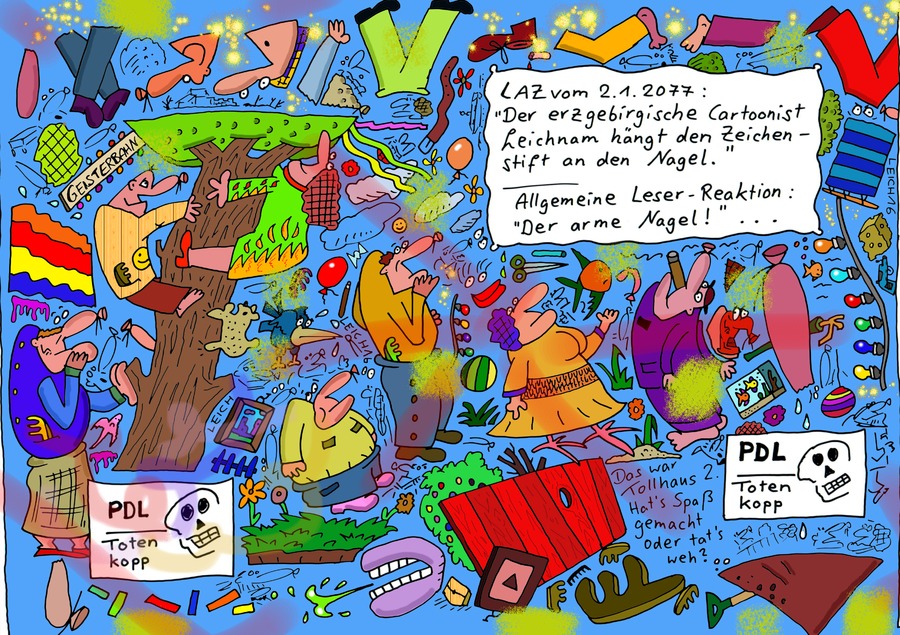 LAZ vom 2.1.2077:
"Der erzgebirgische Cartoonist
Leichnam hängt den Zeichen-
stift an den Nagel."
Allgemeine Leser-Reaktion:
"Der arme Nagel!" ...
GEISTERBAHN
LEICH16
EICH
EICH
PDL
Toten
kopp
Das war
Tollhaus 2.
Hat's Spaß
gemacht
oder tat's
weh?...
PDL
Toten
kopp